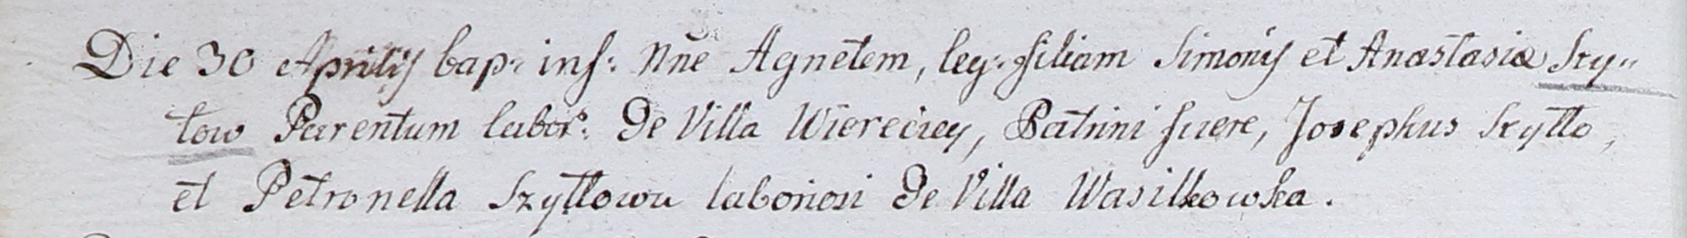 Die 30 Aprilis bap: inf: Nne Agnetem, leg: filiam Simonis et Anastasia Szy-
tow Parentum labor: De Villa Wiereciey, Patrini fuere, Josephus Szytto,
et Petronella Szyttowa laboriosi De Villa Wasilkowska.